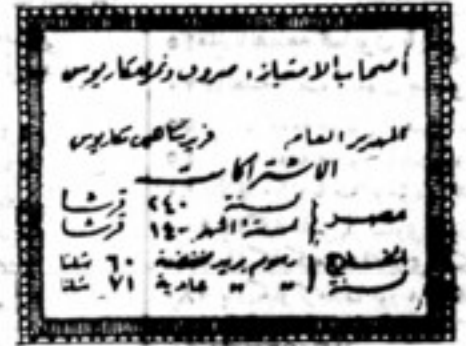 أصحاب الامتياز: صروف ونمر ومكاريوس
المدير العام فريد شاهين مكاريوس
الاشتراكات
مصر سنة ٢٤٠ قرشا
لستة أشهر ١٤٠ قرشا
الخارج رسوم بريد مخفضة ٦٠ شلنا
سنة " " عادية ٧١ شلنا